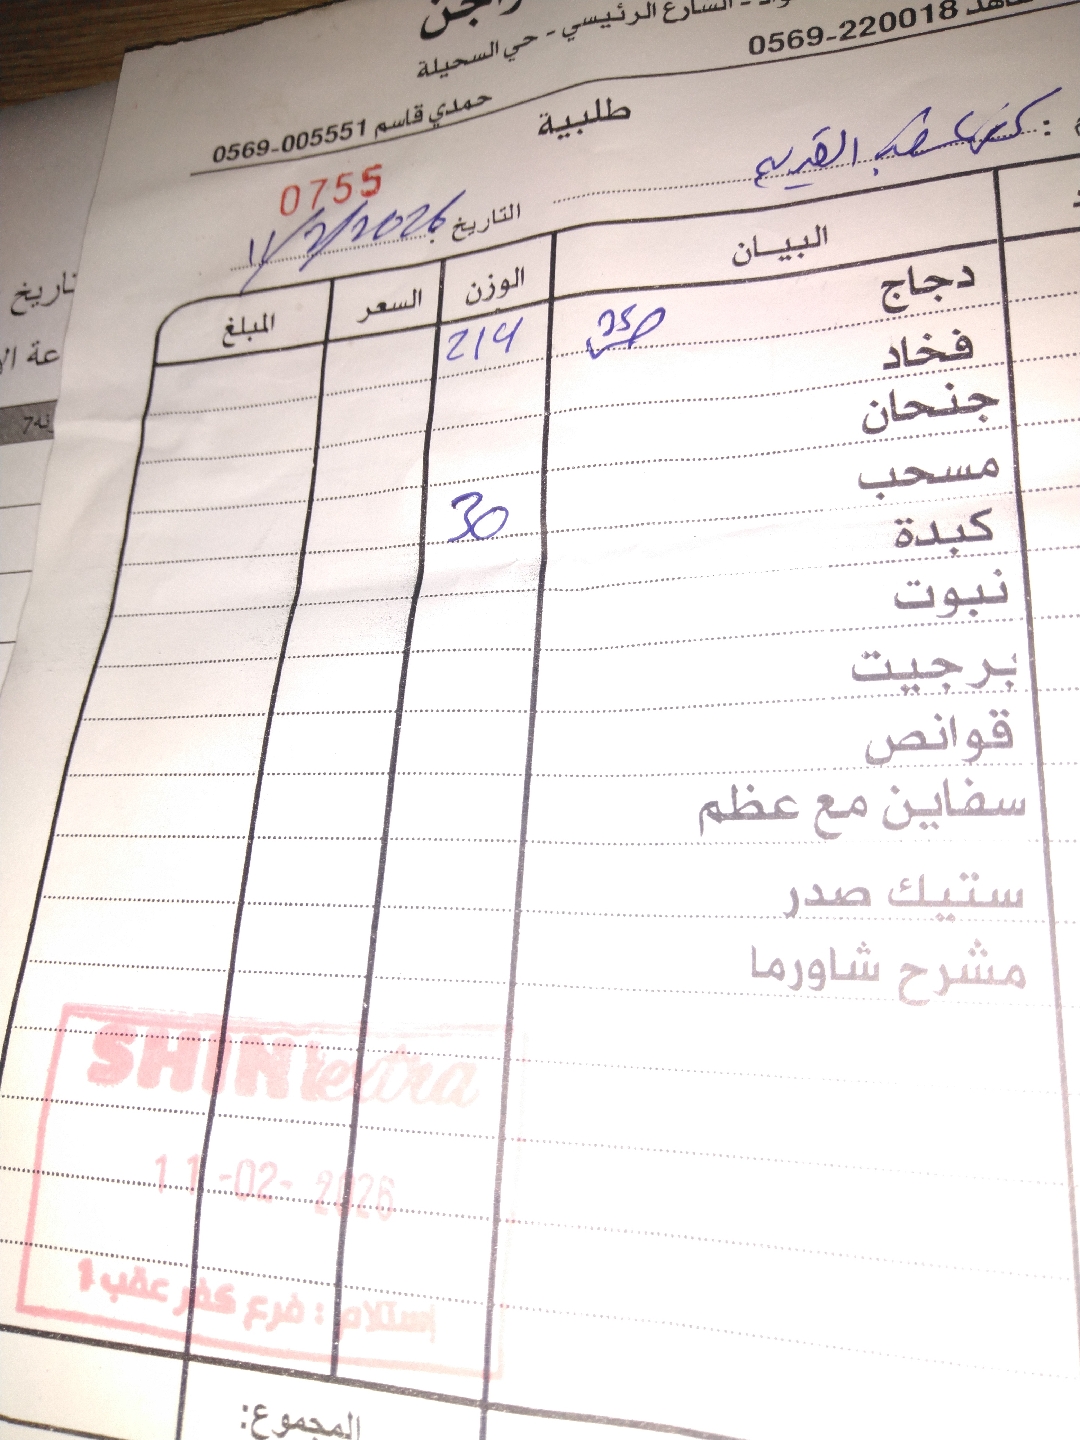 الشارع الرئيسي - حي السحيلة
0569-220018
حمدي قاسم 0569-005551
طلبية
كفر عقب القديم
0755
التاريخ 11/2/2026
البيـان
الوزن
السعر
المبلغ
دجاج 214
فخاد
جنحان
مسحب
كبدة 30
نبوت
برجيت
قوانص
سفاين مع عظم
ستيك صدر
مشرح شاورما
SHINI extra
11-02-2026
إستلام : فرع كفر عقب 1
المجموع: